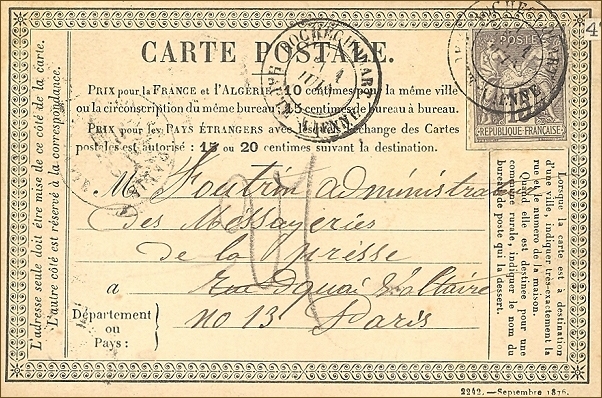 CARTE POSTALE.
PRIX pour la FRANCE et l'ALGÉRIE: 10 centimes pour la même ville
ou la circonscription du même bureau; 15 centimes de bureau à bureau.
PRIX pour les PAYS ÉTRANGERS avec lesquels l'échange des Cartes
postales est autorisé: 15 ou 20 centimes suivant la destination.
POSTE
15
REPUBLIQUE FRANÇAISE
ROCHECHOUART
VIENNE
L'adresse seule doit être mise de ce côté de la carte.
L'autre côté est réservé à la correspondance.
M. Foutrin administrateur
des Messageries
de la Presse
a
Quai Voltaire
no 13 Paris
Département
ou
Pays:
Lorsque la carte est à destination
d'une ville, indiquer très-exactement la
rue et le numéro de la maison.
Quand elle est destinée pour une
commune rurale, indiquer le nom du
bureau de poste qui la dessert.
2242.—Septembre 1876.